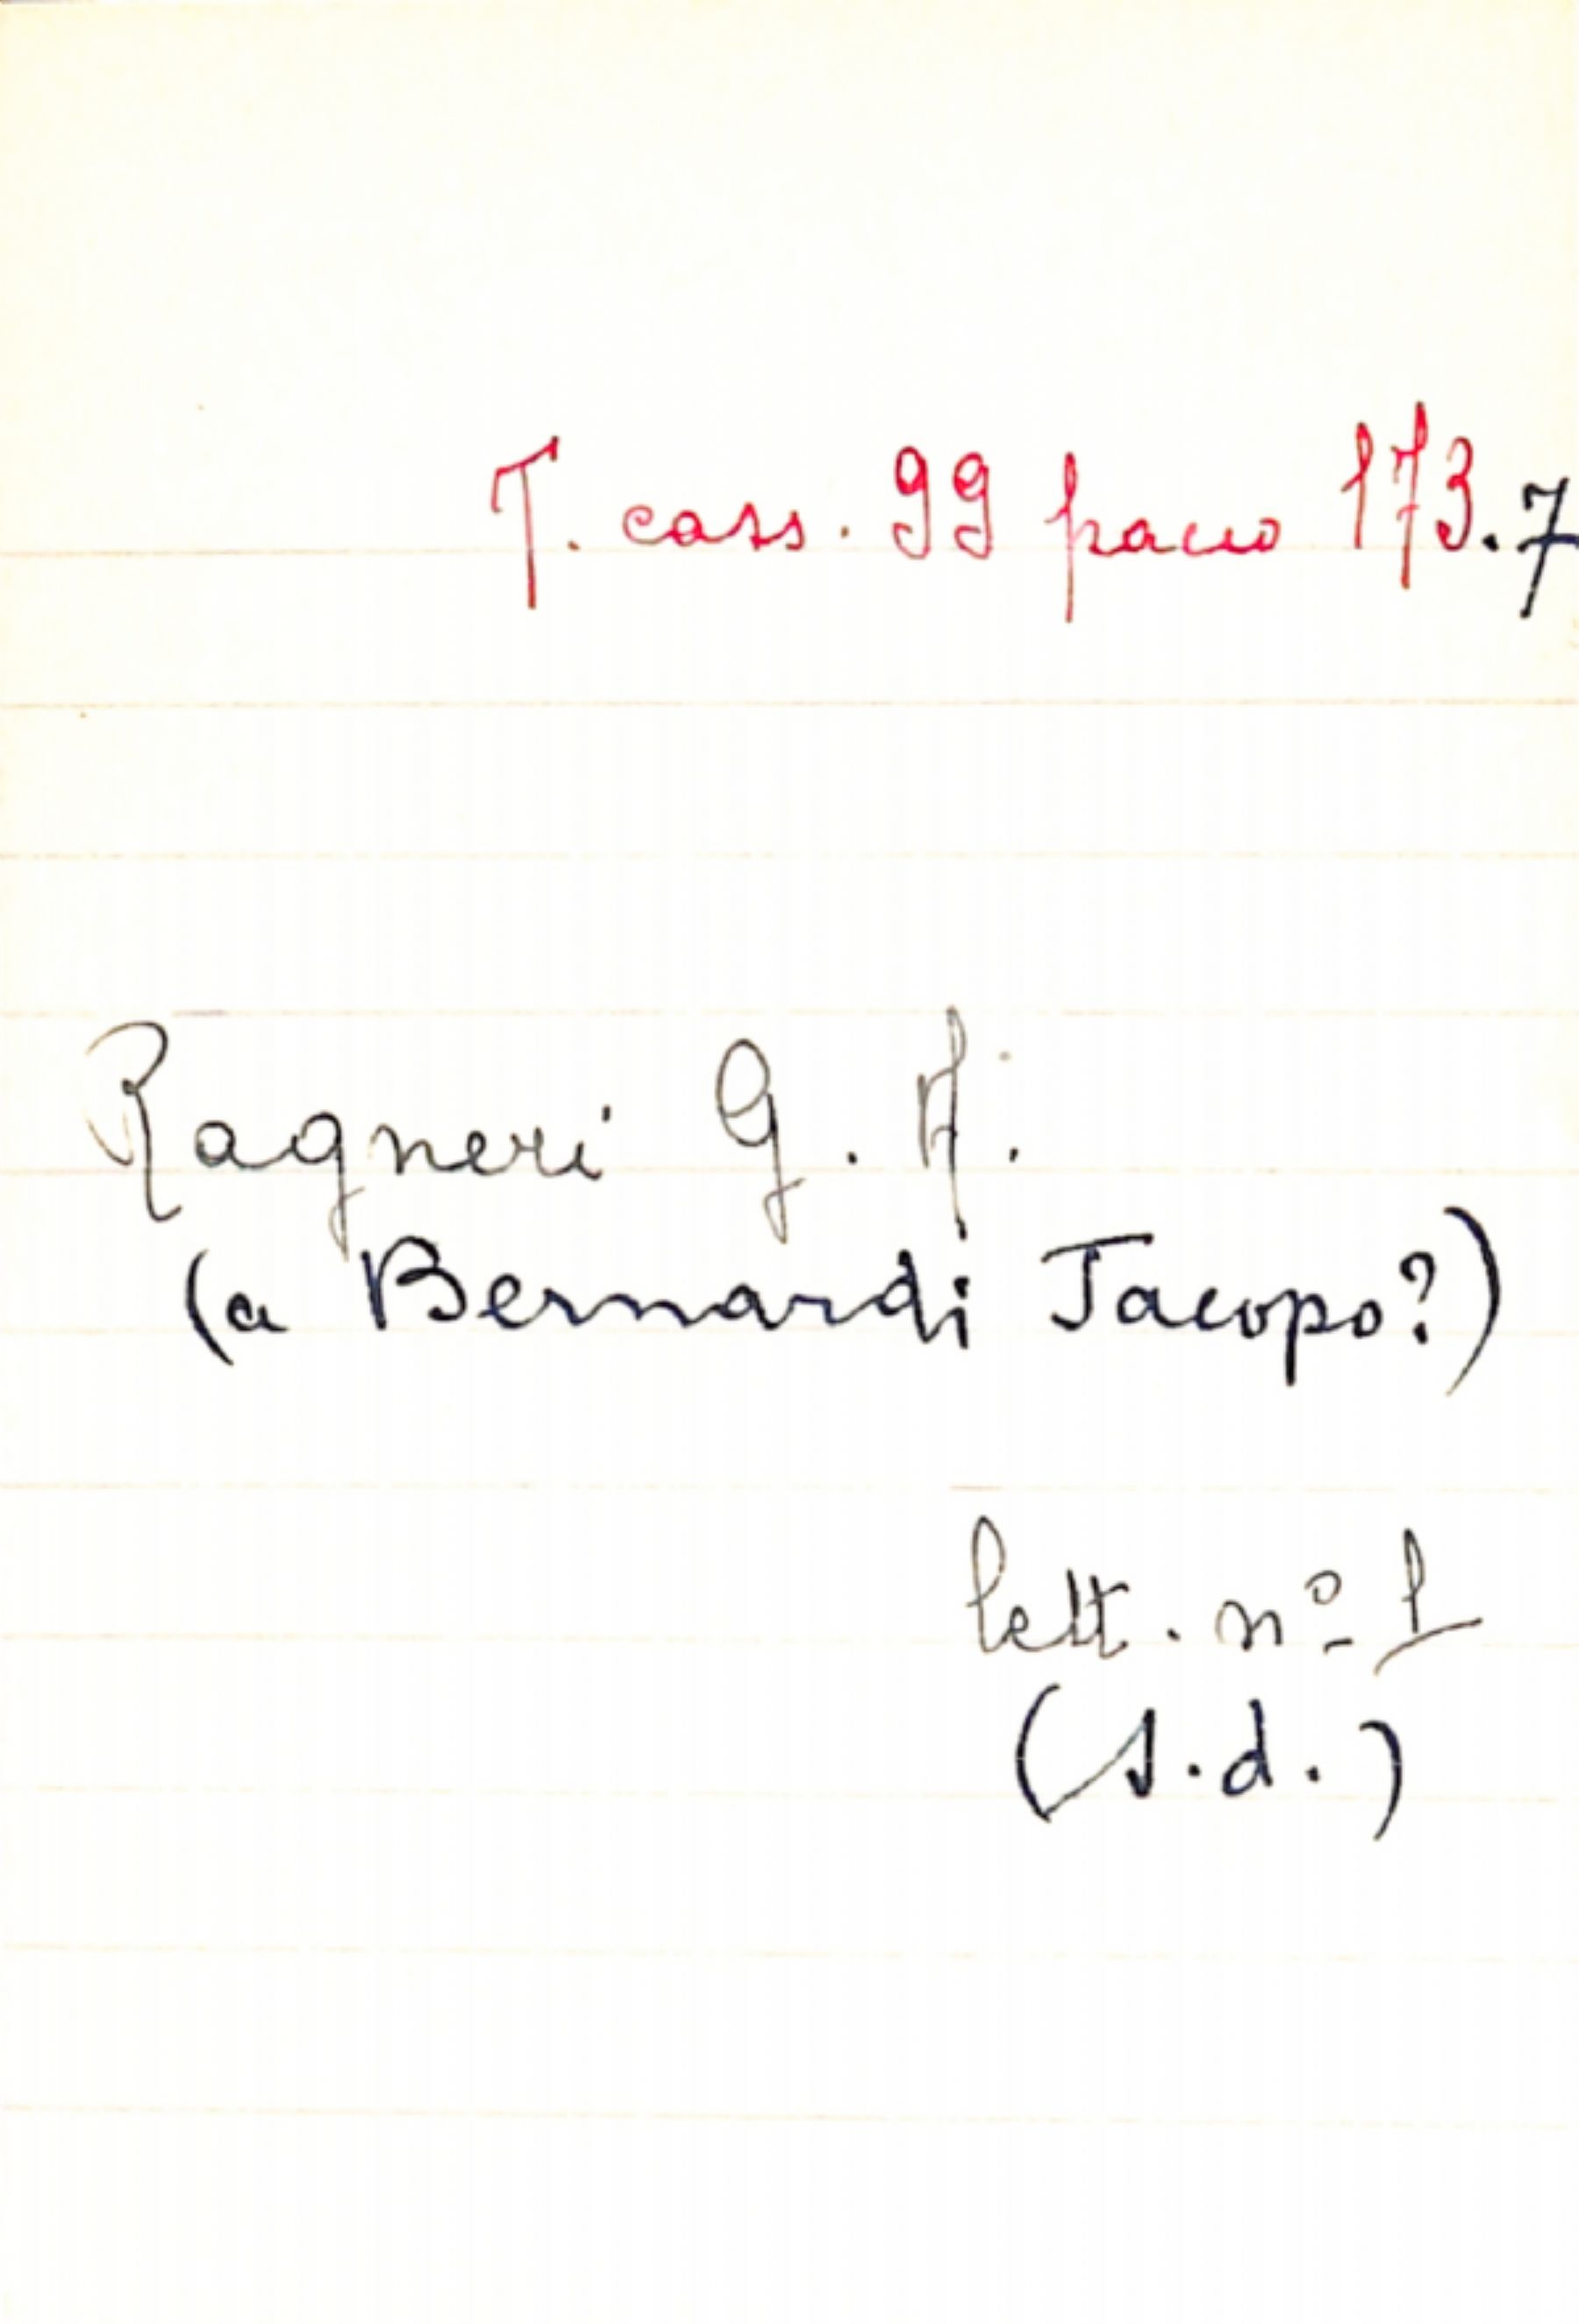 T. cass. 99 pacco 173.7
Ragneri G. A.
(a Bernardi Jacopo?)
lett. nº 1
(s.d.)